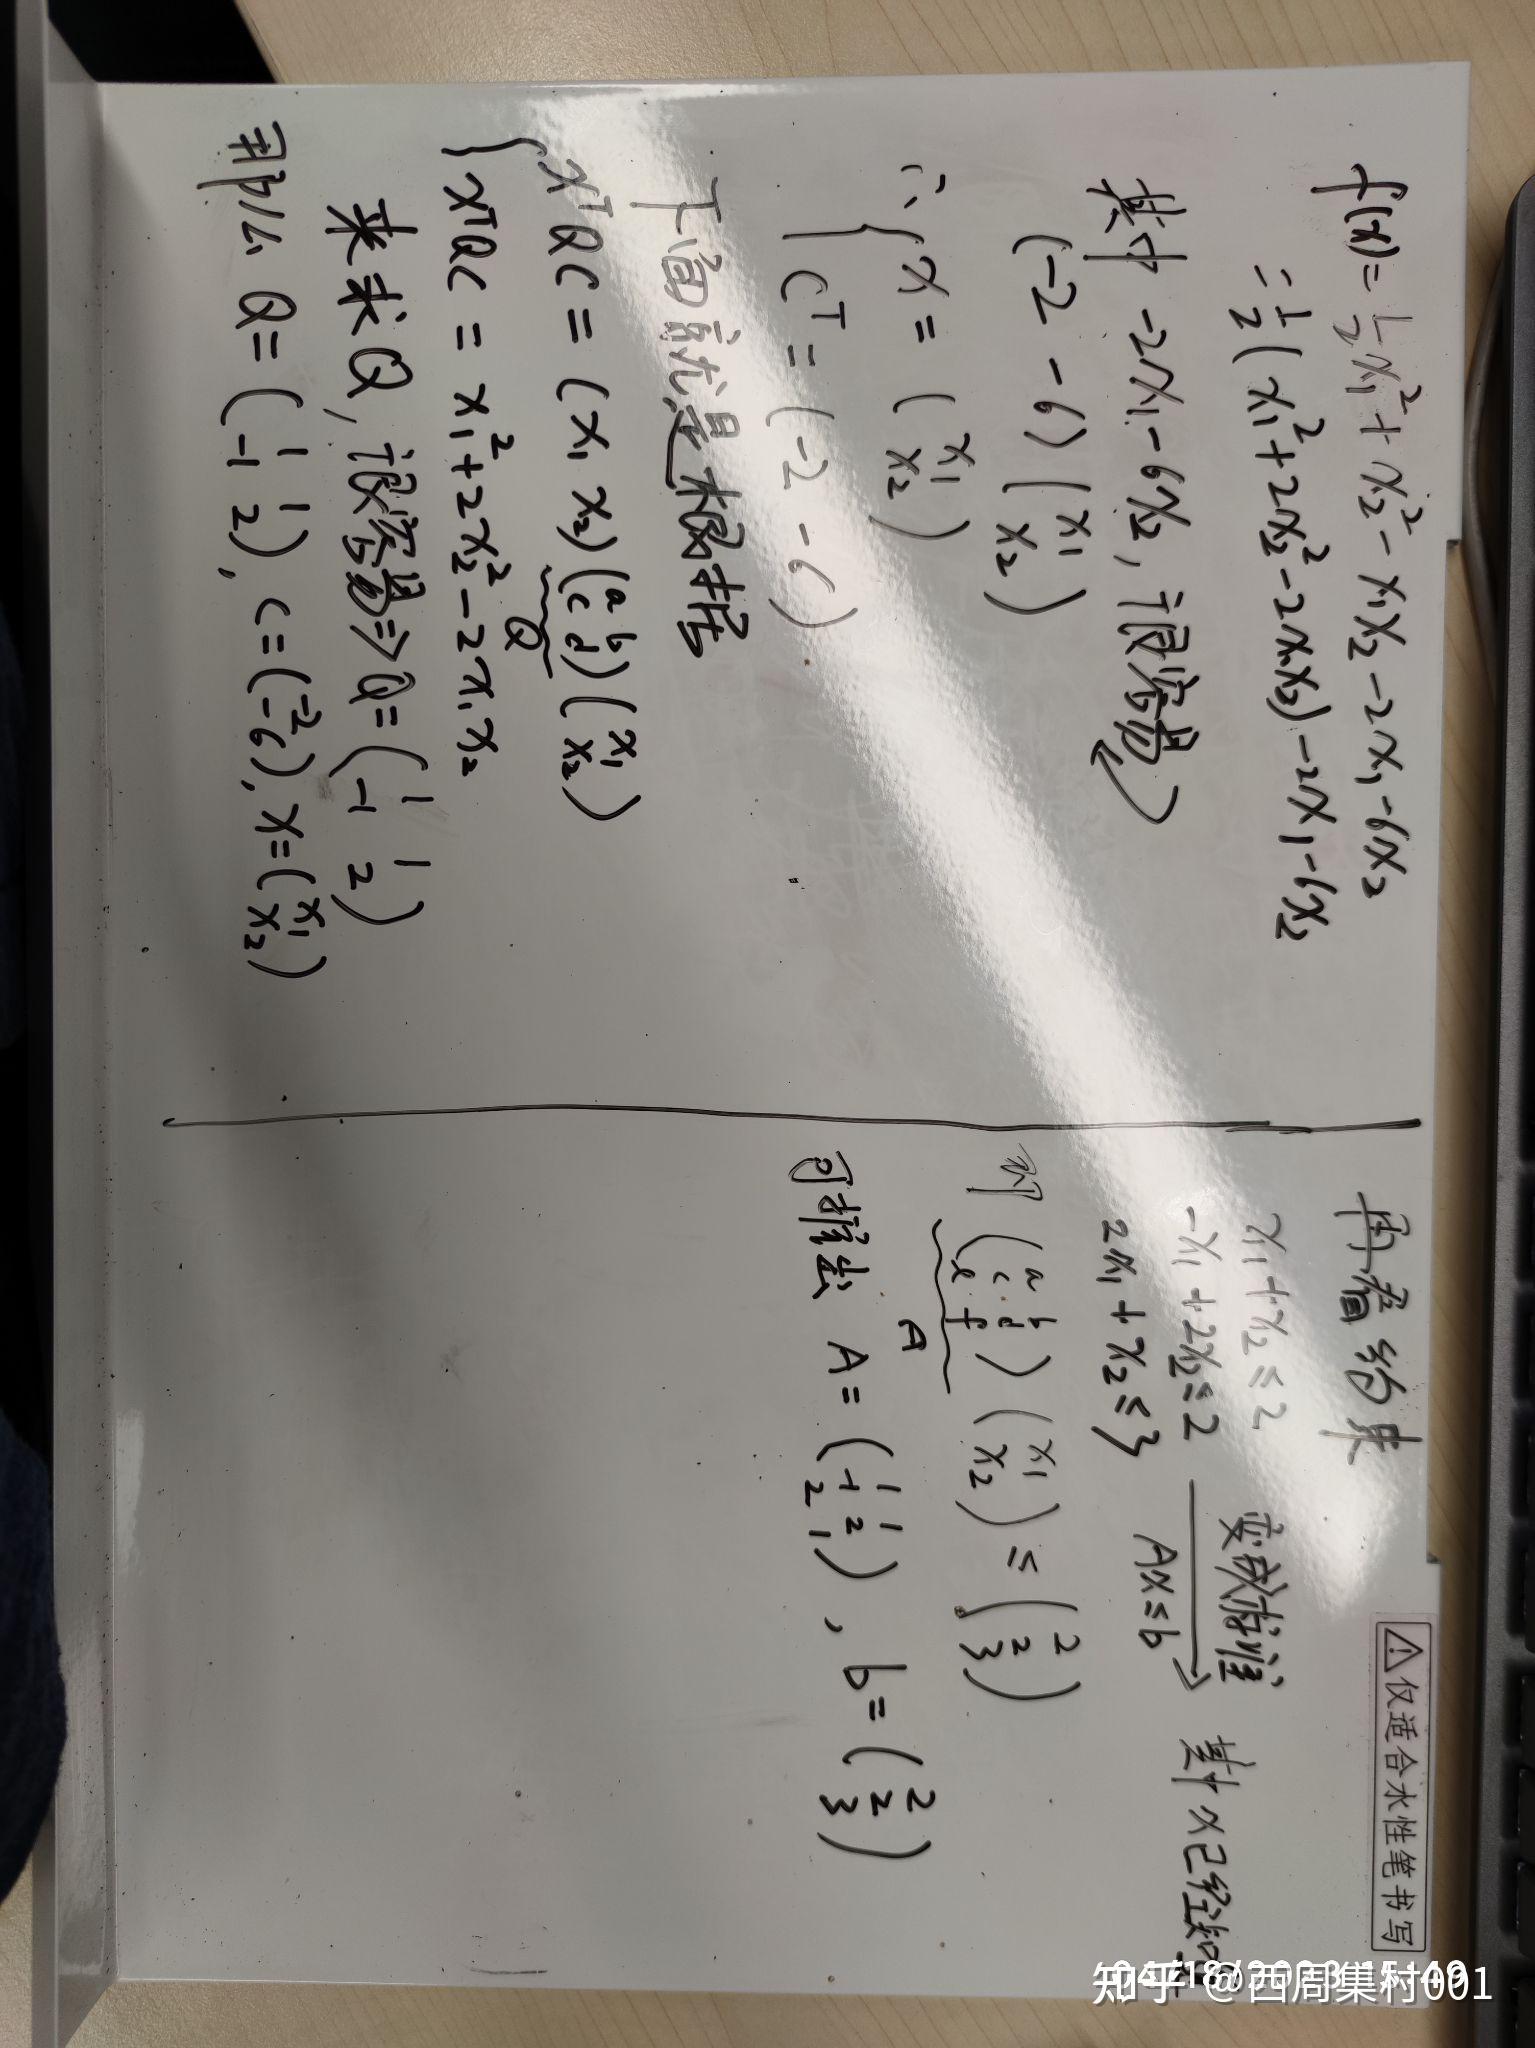 f(x) = ½x₁² + x₂² - x₁x₂ - 2x₁ - 6x₂
= ½(x₁² + 2x₂² - 2x₁x₂) - 2x₁ - 6x₂
其中 -2x₁ - 6x₂, 很容易
(-2 -6)(x₁ x₂)
∴ { x = (x₁ x₂)
Cᵀ = (-2 -6)
下面就是根据
{ xᵀQC = (x₁ x₂)(a b c d)(x₁ x₂)
Q
xᵀQC = x₁² + 2x₂² - 2x₁x₂
来求Q, 很容易⇒Q = (1 1 -1 2)
那么 Q = (1 1 -1 2), c = (-2 -6), x = (x₁ x₂)
再看约束
x₁ + x₂ ≤ 2
-x₁ + 2x₂ ≤ 2
2x₁ + x₂ ≤ 3
变成标准
Ax ≤ b
其中 x已经知
则 (a b c d e f)(x₁ x₂) ≤ (2 2 3)
A
可推出 A = (1 1 -1 2 2 1), b = (2 2 3)
仅适合水性笔书写
知乎 @西周集村001